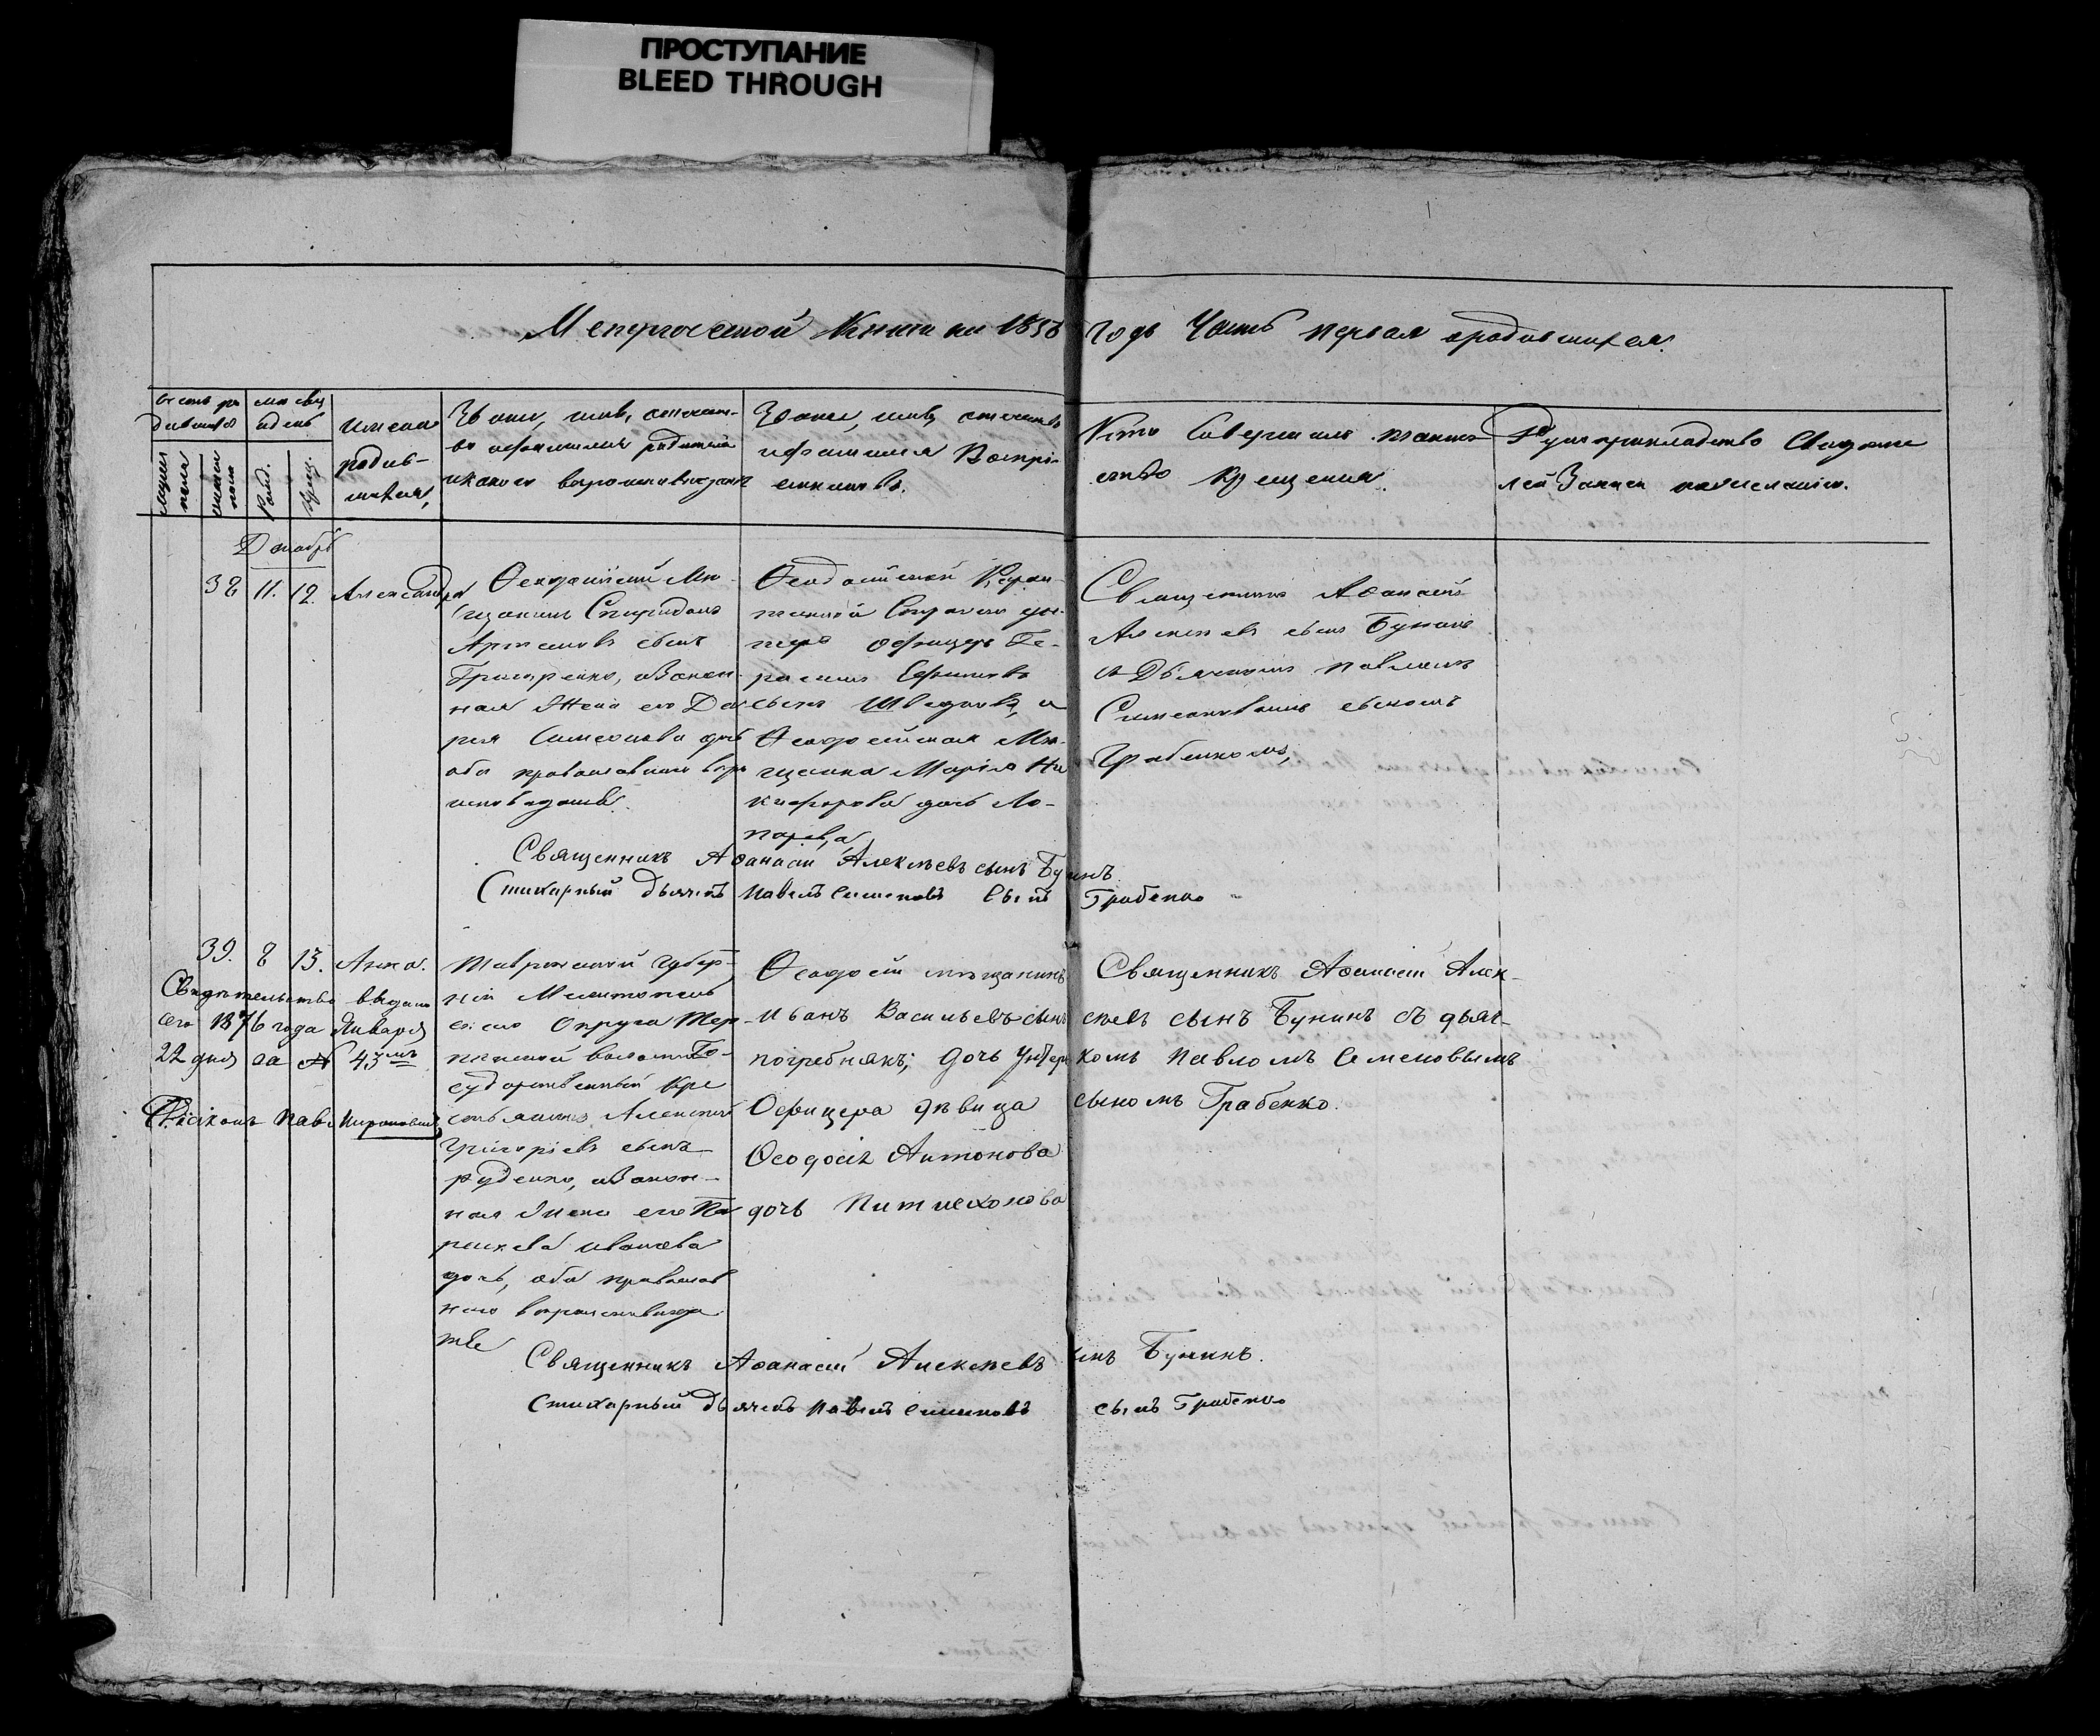 ПРОСТУПАНИЕ
BLEED THROUGH
Метрической Книги на 1858 годъ Часть первая ородившихся.
мѣсяц
и день
Имена
родив-
шихся,
Званіе, имя, отчест-
во ифамилія родителей
икакого вѣроисповѣданія
Званіе, имя, отечество
ифамилія Воспрі-
емниковъ.
Кто Совершалъ таин-
ство Крещенія.
Рукоприкладство Свидѣте
лей Записи пожеланію.
мужеска
пола
женска
пола
Рожд.
Крещ.
Декабрь
38 11. 12. Александра
Ѳеодосійскій Мѣ-
щанинъ Спиридонъ
Артемовъ сынъ
Григоренко, изакон-
ная Жена его Да-
рія Симеонова дочь
оба православнаго вѣро
исповѣданія.
Ѳеодосійской Каран-
тинной Стражи ун-
теръ офицеръ Ге-
расимъ Ефимовъ
сынъ Шведовъ, и
Ѳеодосійская Мѣ-
щанка Марія Ни
кифорова дочь Ло-
парева,
Священникъ Аѳанасій
Алексѣевъ сынъ Бунинъ
съ Дьячкомъ Павломъ
Симеоновымъ сыномъ
Грабенкомъ,
Священникъ Аѳанасій Алексѣевъ сынъ Бунинъ.
Стихарный дьячекъ Павелъ Симеоновъ Сынъ Грабенко
39. 8 13. Анна.
Свидѣтельство выдано
сего 1876 года Января
22 дня за № 43мъ
Таврической Губер-
ніи Мелитополь
скаго Округа Тер-
пеніи волости Го-
сударственный Кре
стьянинъ Алексѣй
Григоріевъ сынъ
Руденко, изакон-
ная Жена его Па
раскева Иванова
дочь, оба православ
наго вѣроисповѣда
нія
Ѳеодосій мѣщанинъ
Иванъ Васильевъ сынъ
погребнякъ; дочь Унтеръ
Офицера дѣвица
Ѳеодосія Антонова
дочь
Священникъ Аѳанасій Алек-
сѣевъ сынъ Бунинъ съ дьяч-
комъ Павломъ Семеновымъ
сыномъ Грабенко.
Священникъ Аѳанасій Алексѣевъ сынъ Бунинъ.
Стихарный дьячекъ Павелъ Симеоновъ сынъ Грабенко